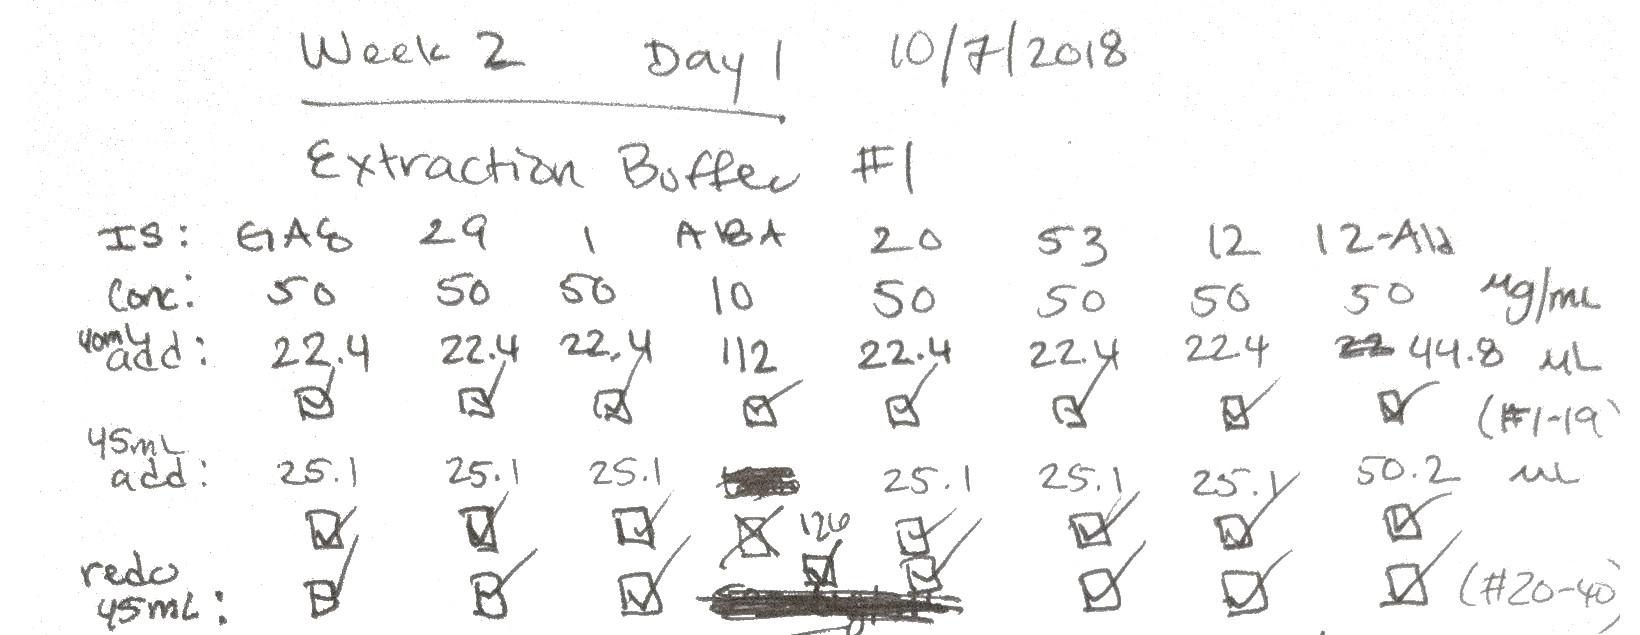 Week 2 Day 1 10/7/2018
Extraction Buffer #1
IS: GA8 29 1 ABA 20 53 12 12-Ald
Conc: 50 50 50 10 50 50 50 50 µg/mL
40mL add: 22.4 22.4 22.4 112 22.4 22.4 22.4 44.8 µL
(#1-19)
45mL
add: 25.1 25.1 25.1 25.1 25.1 25.1 50.2 µL
126
redo
45mL: (#20-40)